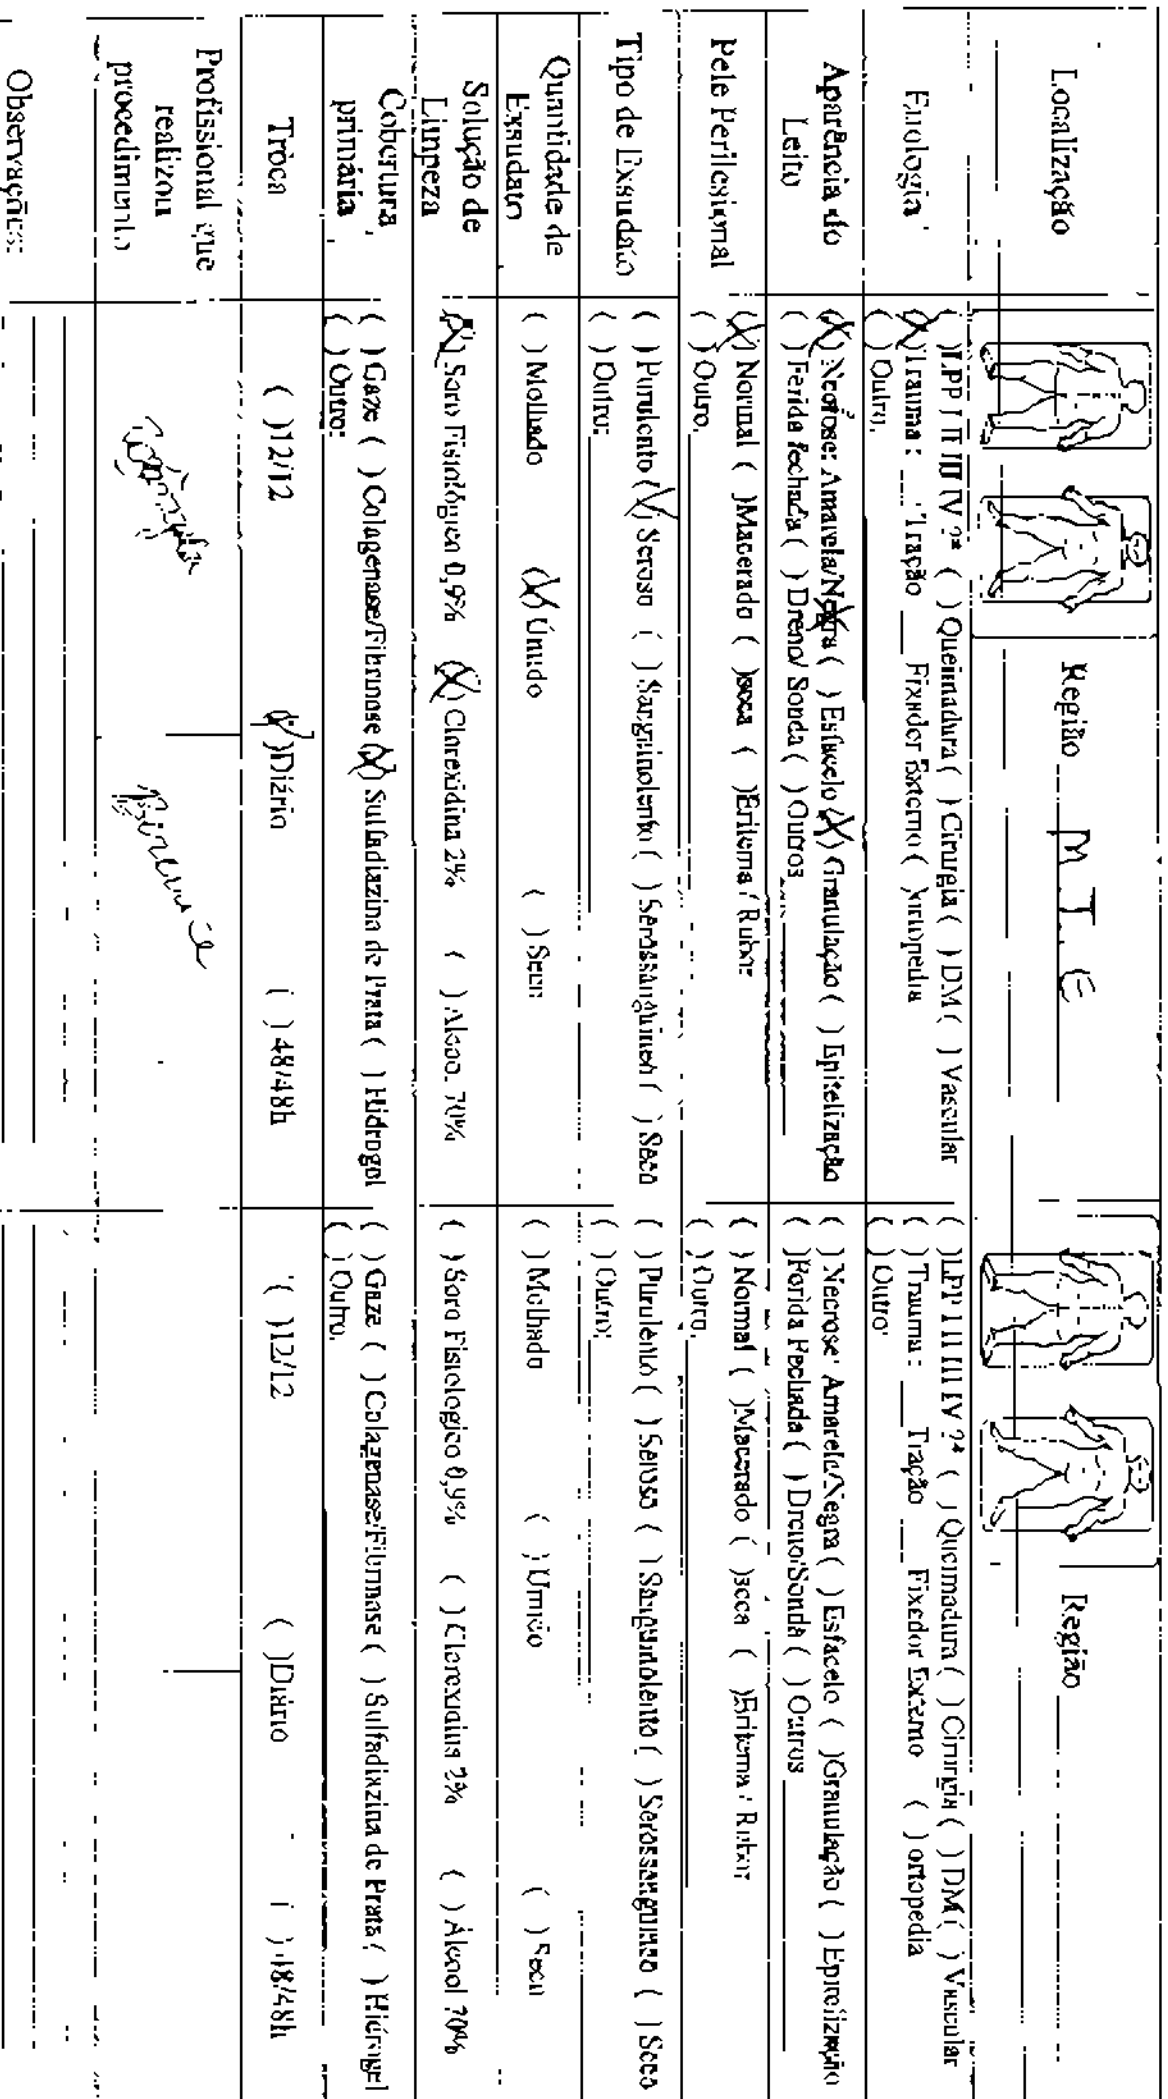 Localização
Região M I E
Região
Etiologia
( )LPP I II III IV ?* ( )Queimadura( )Cirurgia( )DM( )Vascular
(X)Trauma: ___ Tração ___ Fixador Externo ( )ortopedia
( )Outro.
( )LPP I II III IV ?* ( )Queimadura( )Cirurgia( )DM( )Vascular
( )Trauma: ___ Tração ___ Fixador Externo ( )ortopedia
( )Outro
Aparência do
Leito
(X)Necrose: Amarela/Negra( )Esfacelo(X)Granulação( )Epitelização
( )Ferida fechada( )Dreno/Sonda( )Outros
( )Necrose: Amarela/Negra( )Esfacelo( )Granulação( )Epitelização
( )Ferida Fechada( )Dreno/Sonda( )Outros
Pele Perilesional
(X)Normal( )Macerado( )seca( )Eritema/Rubor
( )Outro.
( )Normal( )Macerado( )seca( )Eritema/Rubor
( )Outro.
Tipo de Exsudato
( )Purulento(X)Seroso( )Sanguinolento( )Serossanguineo( )Seco
( )Outro:
( )Purulento( )Seroso( )Sanguinolento( )Serossanguineo( )Seco
( )Outro:
Quantidade de
Exsudato
( )Molhado (X)Úmido ( )Seco
( )Molhado ( )Úmido ( )Seco
Solução de
Limpeza
(X)Soro Fisiológico 0,9% (X)Clorexidina 2% ( )Álcool 70%
( )Soro Fisiologico 0,9% ( )Clorexidina 2% ( )Álcool 70%
Cobertura
primária
( )Gaze( )Colagenase/Fibrinase(X)Sulfadiazina de Prata( )Hidrogel
( )Outro:
( )Gaze( )Colagenase/Fibrinase( )Sulfadiazina de Prata( )Hidrogel
( )Outro.
Troca
( )12/12 (X)Diário ( )48/48h
( )12/12 ( )Diário ( )48/48h
Profissional que
realizou
procedimento
Observações: